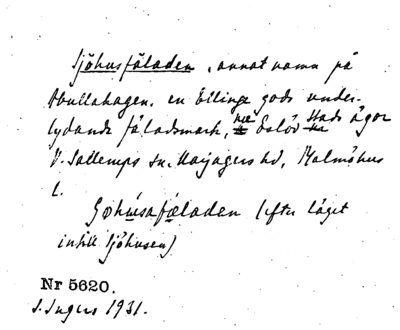 Sjöhusfäladen, annat namn på
Abullahagen, en Ellinge gods under-
lydande fäladsmark, Eslöv stads ägor
V. Sallerups sn. Harjagers hd, Malmöhus
l.
Sjöhúsafäladen (efter läget
intill Sjöhusen)
Nr 5620.
S. Ingers 1931.